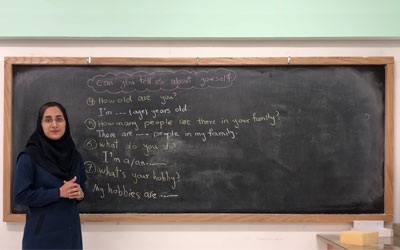 Can you tell us about yourself?
④ How old are you?
I'm ... (age) years old.
⑤ How many people are there in your family?
There are ... people in my family.
⑥ What do you do?
I'm a/an ......
⑦ What's your hobby?
My hobbies are ......